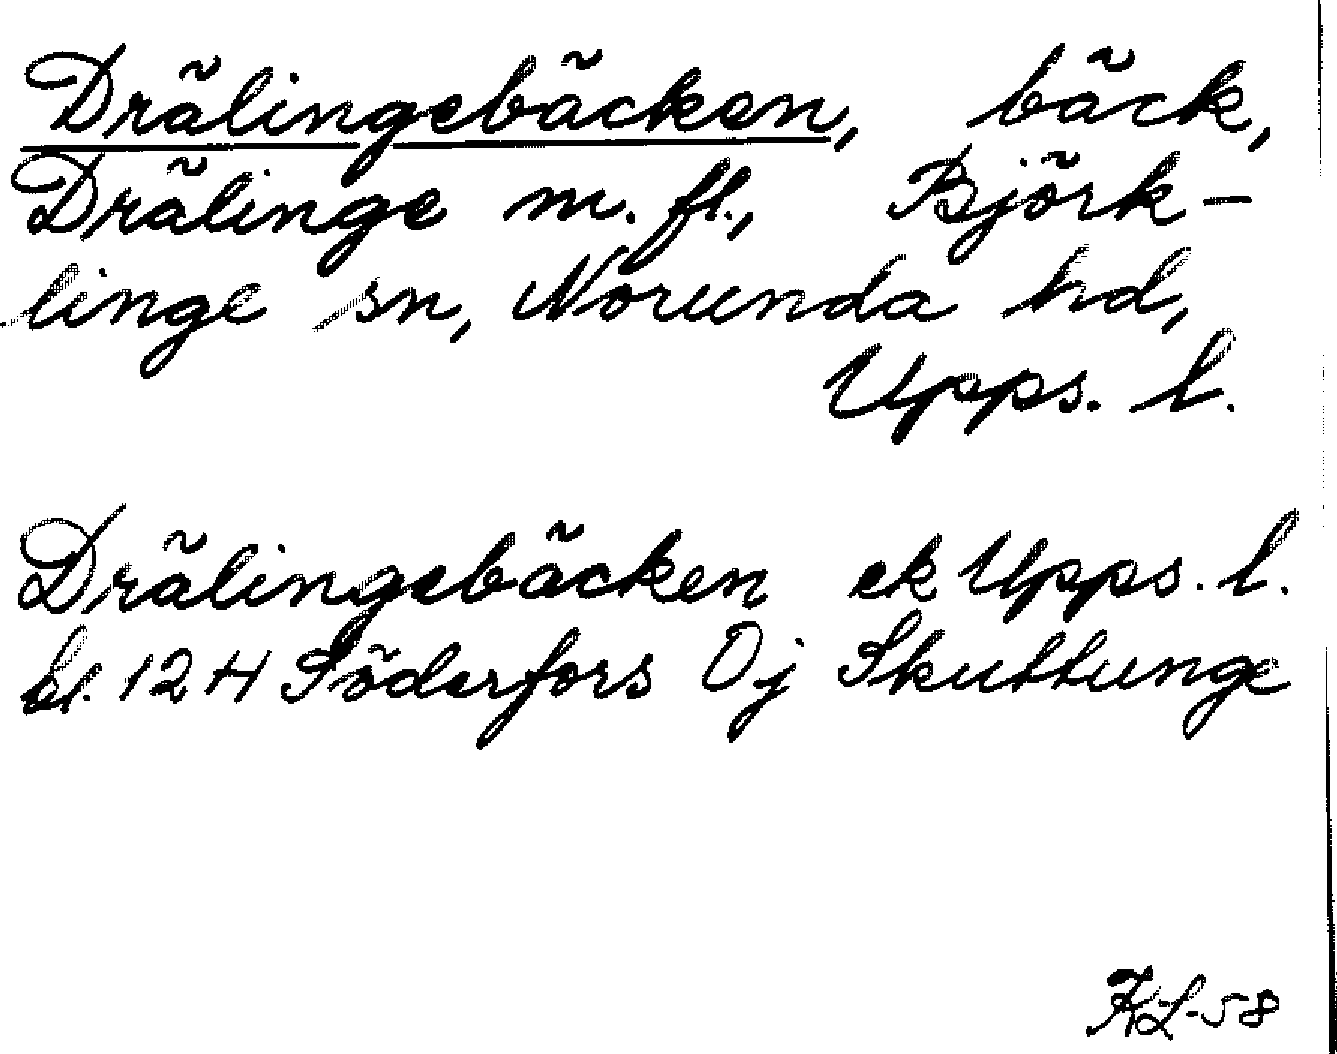 Drälingebäcken, bäck,
Drälinge m. fl., Björk-
linge sn, Norunda hd,
Upps. l.
Drälingebäcken ek Upps. l.
bl. 12 H Söderfors Oj Skuttunge
KL-58